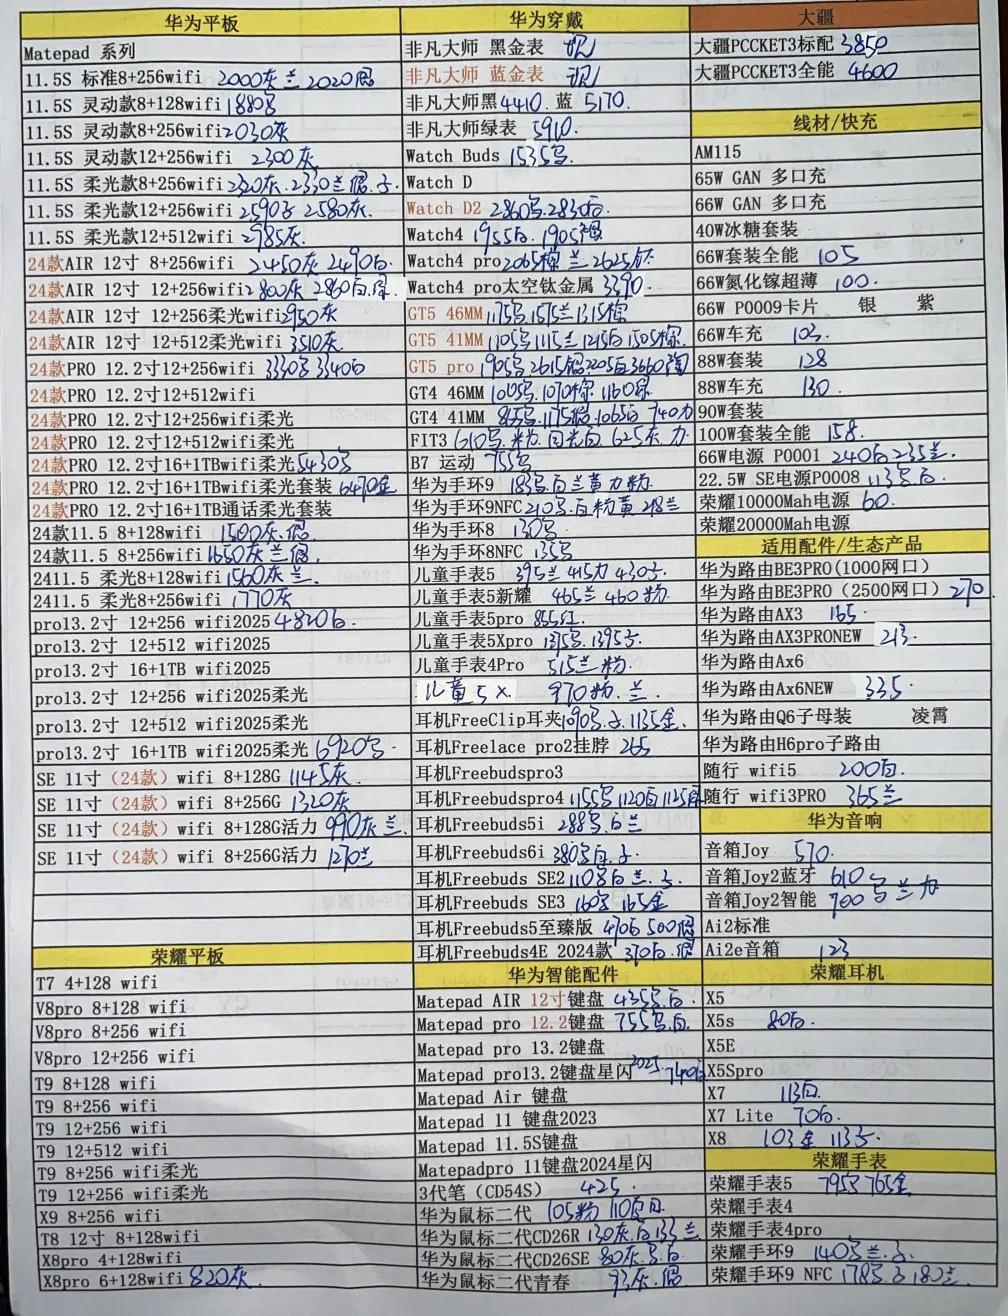 华为平板
Matepad 系列
11.5S 标准8+256wifi 2000灰兰 2020
11.5S 灵动款8+128wifi 1880
11.5S 灵动款8+256wifi 2030灰
11.5S 灵动款12+256wifi 2300灰
11.5S 柔光款8+256wifi 2320灰.2330兰
11.5S 柔光款12+256wifi 2590子 2580灰.
11.5S 柔光款12+512wifi 2985灰.
24款AIR 12寸 8+256wifi 2450灰 2490白.
24款AIR 12寸 12+256wifi 2800灰 2860白.
24款AIR 12寸 12+256柔光wifi 2950灰
24款AIR 12寸 12+512柔光wifi 3510灰
24款PRO 12.2寸12+256wifi 3330 3340白
24款PRO 12.2寸12+512wifi
24款PRO 12.2寸12+256wifi柔光
24款PRO 12.2寸12+512wifi柔光
24款PRO 12.2寸16+1TBwifi柔光 5430
24款PRO 12.2寸16+1TBwifi柔光套装 6470金
24款PRO 12.2寸16+1TB通话柔光套装
24款11.5 8+128wifi 1500灰.
24款11.5 8+256wifi 1650灰兰
2411.5 柔光8+128wifi 1560灰兰.
2411.5 柔光8+256wifi 1770灰
pro13.2寸 12+256 wifi2025 4820白.
pro13.2寸 12+512 wifi2025
pro13.2寸 16+1TB wifi2025
pro13.2寸 12+256 wifi2025柔光
pro13.2寸 12+512 wifi2025柔光
pro13.2寸 16+1TB wifi2025柔光 6920
SE 11寸（24款）wifi 8+128G 1145灰
SE 11寸（24款）wifi 8+256G 1320灰
SE 11寸（24款）wifi 8+128G活力 990灰兰.
SE 11寸（24款）wifi 8+256G活力 1270兰
荣耀平板
T7 4+128 wifi
V8pro 8+128 wifi
V8pro 8+256 wifi
V8pro 12+256 wifi
T9 8+128 wifi
T9 8+256 wifi
T9 12+256 wifi
T9 12+512 wifi
T9 8+256 wifi柔光
T9 12+256 wifi柔光
X9 8+256 wifi
T8 12寸 8+128wifi
X8pro 4+128wifi
X8pro 6+128wifi 820灰
华为穿戴
非凡大师 黑金表 现
非凡大师 蓝金表 现
非凡大师黑4410. 蓝 5170.
非凡大师绿表 5910.
Watch Buds 1535
Watch D
Watch D2 2860 2830白.
Watch4 1955白.1905棕
Watch4 pro 2065棕 兰2625钛
Watch4 pro太空钛金属 3390.
GT5 46MM 1175 1575兰1315棕
GT5 41MM 1105 1115兰1215白1505棕
GT5 pro 1905 2615 2205白3660陶
GT4 46MM 1005 1070棕 1160绿
GT4 41MM 845 1175棕.1065白 740力
FIT3 610 粉.月光白 625灰.力
B7 运动 755
华为手环9 183 白兰黄力粉
华为手环9NFC 210 白粉黄 218兰
华为手环8 130
华为手环8NFC 135
儿童手表5 395兰 415力 430子.
儿童手表5新耀 465兰 460粉
儿童手表5pro 855红
儿童手表5Xpro 1375 1395子.
儿童手表4Pro 515兰粉.
儿童5X 970粉.兰.
耳机FreeClip耳夹1090 子.1135金.
耳机Freelace pro2挂脖 265
耳机Freebudspro3
耳机Freebudspro4 1155 1120白 1125
耳机Freebuds5i 288 白兰
耳机Freebuds6i 380 白.子.
耳机Freebuds SE2 110 白兰.子.
耳机Freebuds SE3 160 165金
耳机Freebuds5至臻版 470白 500
耳机Freebuds4E 2024款 370白.
华为智能配件
Matepad AIR 12寸键盘 435 白.
Matepad pro 12.2键盘 755 白
Matepad pro 13.2键盘
Matepad pro13.2键盘星闪2025.740白
Matepad Air 键盘
Matepad 11 键盘2023
Matepad 11.5S键盘
Matepadpro 11键盘2024星闪
3代笔（CD54S） 425.
华为鼠标二代 105粉 110 白.
华为鼠标二代CD26R 130灰.白 133兰
华为鼠标二代CD26SE 80灰. 白.
华为鼠标二代青春 93灰.
大疆
大疆PCCKET3标配 3850
大疆PCCKET3全能 4600
线材/快充
AM115
65W GAN 多口充
66W GAN 多口充
40W冰糖套装
66W套装全能 105
66W氮化镓超薄 100.
66W P0009卡片 银 紫
66W车充 103.
88W套装 128
88W车充 130.
90W套装
100W套装全能 158.
66W电源 P0001 240白 235兰.
22.5W SE电源P0008 113 白.
荣耀10000Mah电源 60.
荣耀20000Mah电源
适用配件/生态产品
华为路由BE3PRO(1000网口)
华为路由BE3PRO（2500网口）270
华为路由AX3 165.
华为路由AX3PRONEW 213.
华为路由Ax6
华为路由Ax6NEW 335.
华为路由Q6子母装 凌霄
华为路由H6pro子路由
随行 wifi5 200白.
随行 wifi3PRO 365兰
华为音响
音箱Joy 570.
音箱Joy2蓝牙 610
音箱Joy2智能 700 兰力
Ai2标准
Ai2e音箱 123
荣耀耳机
X5
X5s 80白.
X5E
X5Spro
X7 113白.
X7 Lite 70白.
X8 103金 113子.
荣耀手表
荣耀手表5 795 765金
荣耀手表4
荣耀手表4pro
荣耀手环9 140 兰.子.
荣耀手环9 NFC 178 180兰.